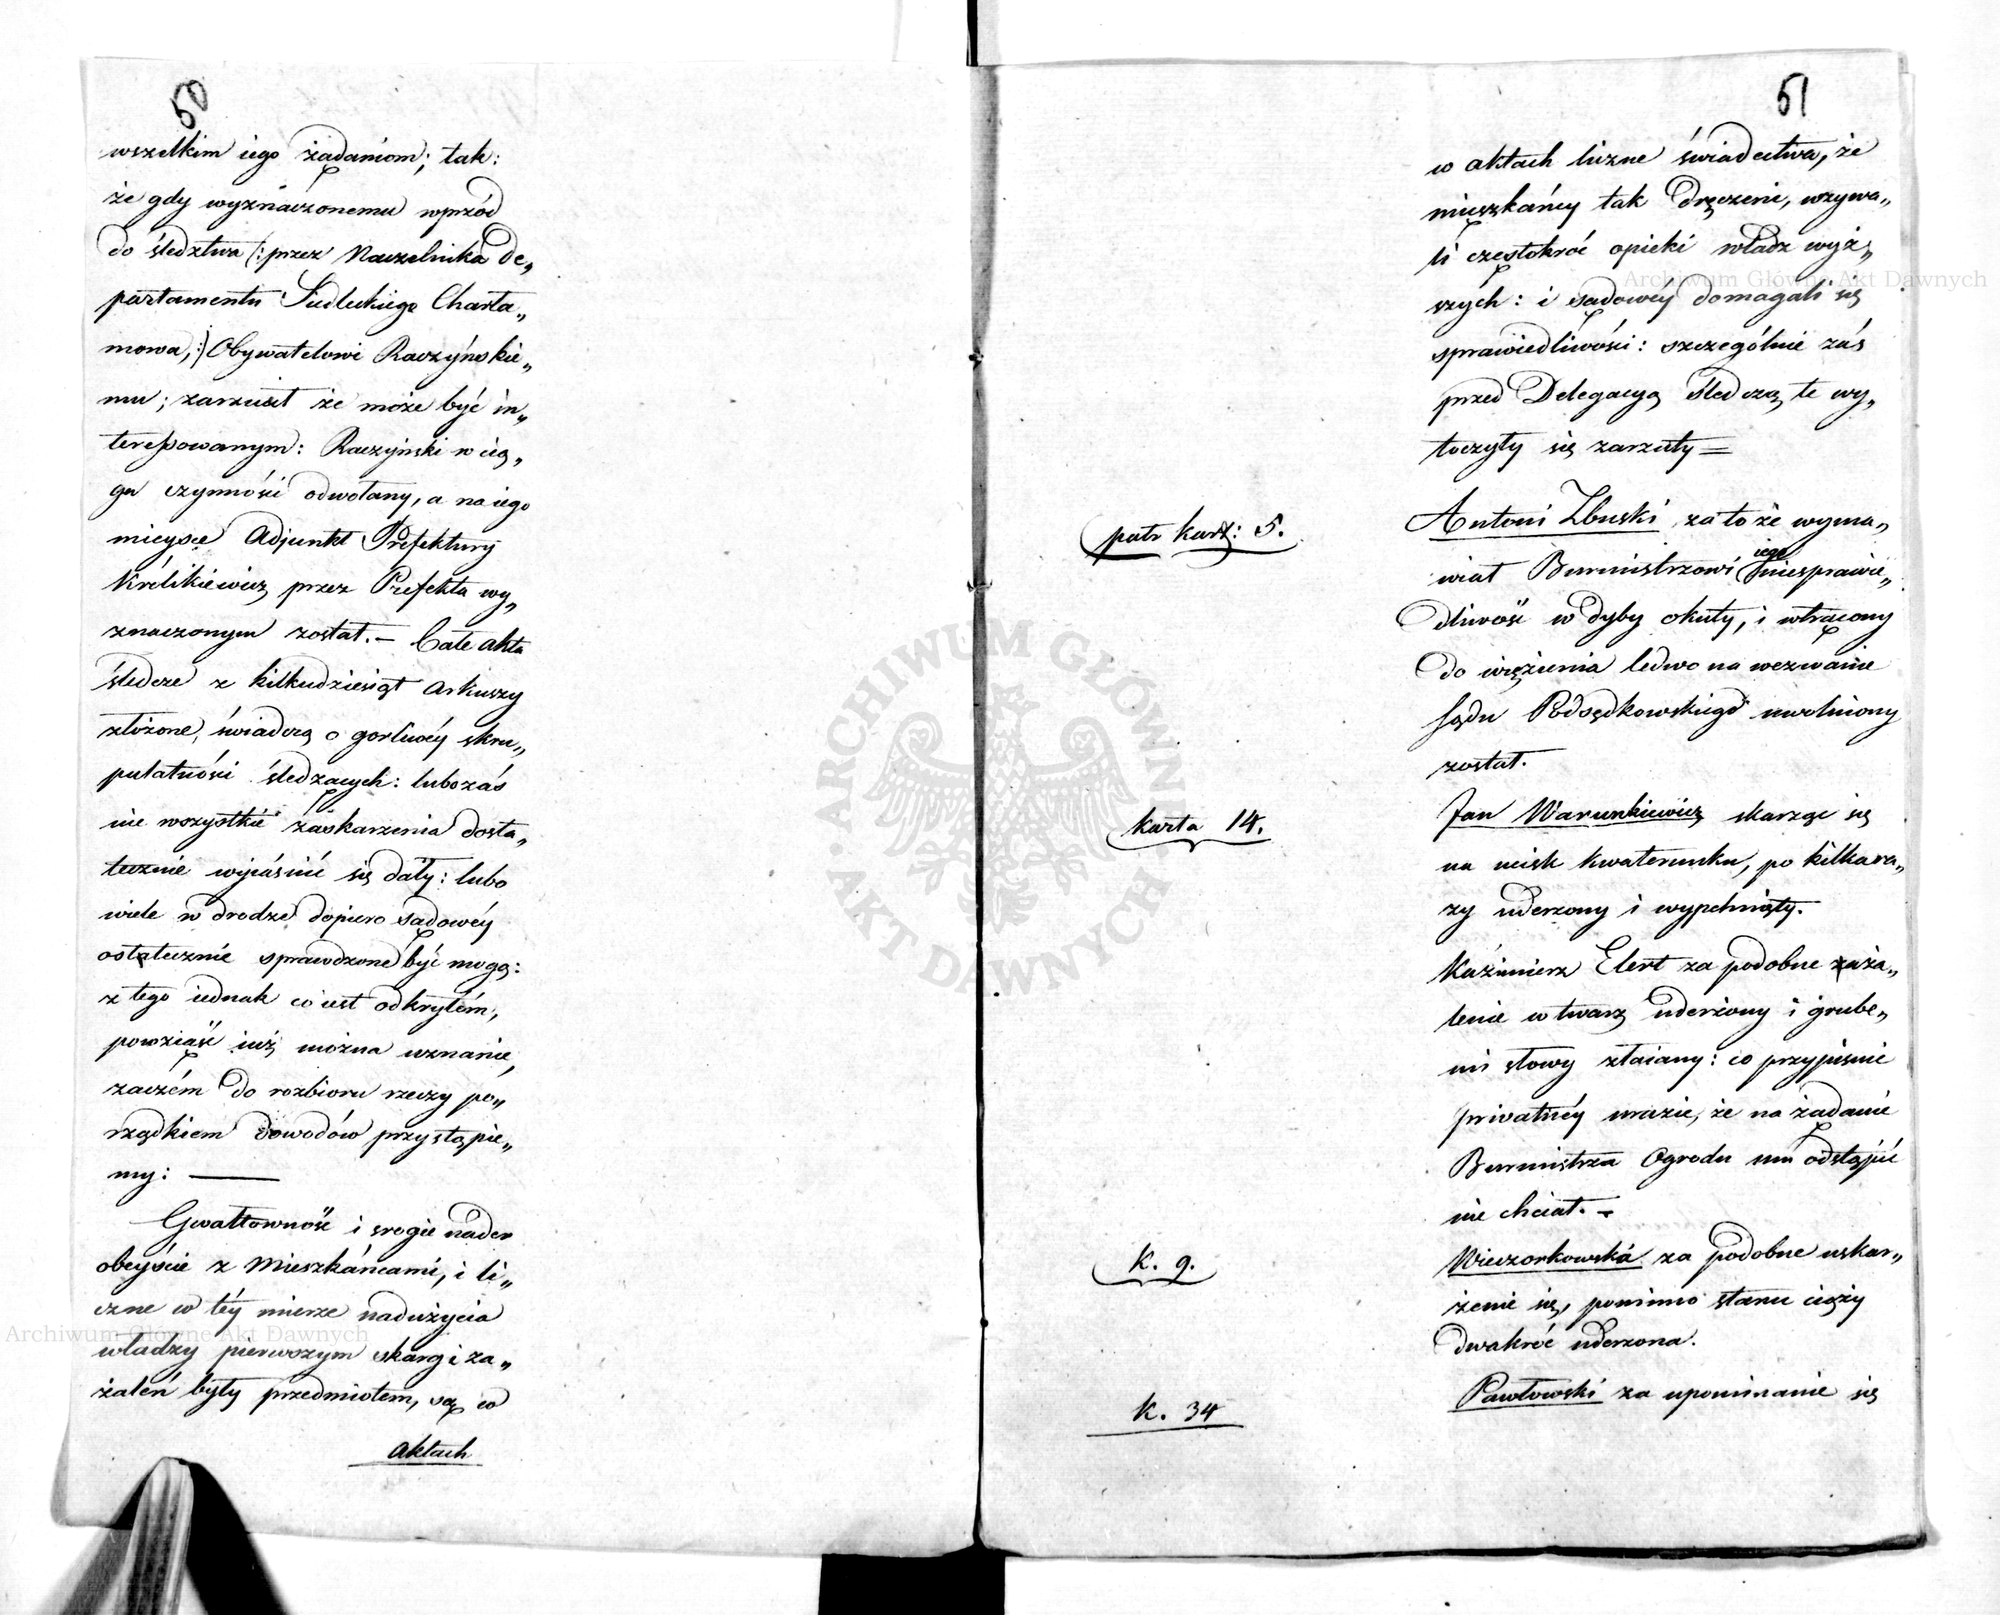 50
wszelkim iego żądaniom; tak:
że gdy wyznaczonemu wprzód
do śledztwa (: przez Naczelnika De„
partamentu Siedleckiego Charła„
mowa, :) Obywatelowi Raczyńskie„
mu; zarzucił że może być in„
teressowanym: Raczyński w cią„
gu czynności odwołany, a na iego
mieysce Adjunkt Prefektury
Królikiewicz przez Prefekta wy„
znaczonym został. — Całe akta
śledcze z kilkudziesiąt arkuszy
złożone, świadczą o gorliwéy skru„
pulatności śledzących: lubo zaś
nie wszystkie zaskarżenia dosta„
tecznie wyiaśnić się dały: lubo
wiele w drodze dopiero sądowéy
ostatecznie sprawdzone być mogą:
z tego iednak co iest odkrytém,
powziąść iuż można uznanie,
zaczém do rozbioru rzeczy po„
rządkiem dowodów przystąpie„
my: —
Gwałtowność i srogie nader
obeyście z Mieszkańcami, i li„
czne w téy mierze nadużycia
władzy pierwszym skarg i za„
żaleń były przedmiotem, są w
aktach
51
w aktach liczne świadectwa, że
mieszkańcy tak dręczeni, wzywa„
li częstokroć opieki władz wyż„
szych: i sądowéy domagali się
sprawiedliwości: szczególnie zaś
przed Delegacyą śledczą te wy„
toczyły się zarzuty =
patr kart: 5.
Antoni Zbuski za to że wyma„
wiał Burmistrzowi iego niesprawie„
dliwość w dyby okuty, i wtrącony
do więzienia ledwo na wezwanie
Sądu Podsędkowskiego uwolniony
został.
karta 14.
Jan Warunkiewicz skarżąc się
na ucisk kwaterunku, po kilkara„
zy uderzony i wypchnięty.
Kaźimierz Elert za podobne zaża„
lenie w twarz uderzony i grube„
mi słowy złaiany: co przypisuie
prywatnéy urazie, że na żądanie
Burmistrza Ogrodu mu odstąpić
nie chciał. —
K. 9.
Wieczorkowska za podobne uskar„
żenie się, pomimo stanu ciąży
dwakroć uderzona.
K. 34
Pawłowski za upominanie się
Archiwum Główne Akt Dawnych
Archiwum Główne Akt Dawnych
ARCHIWUM GŁÓWNE AKT DAWNYCH